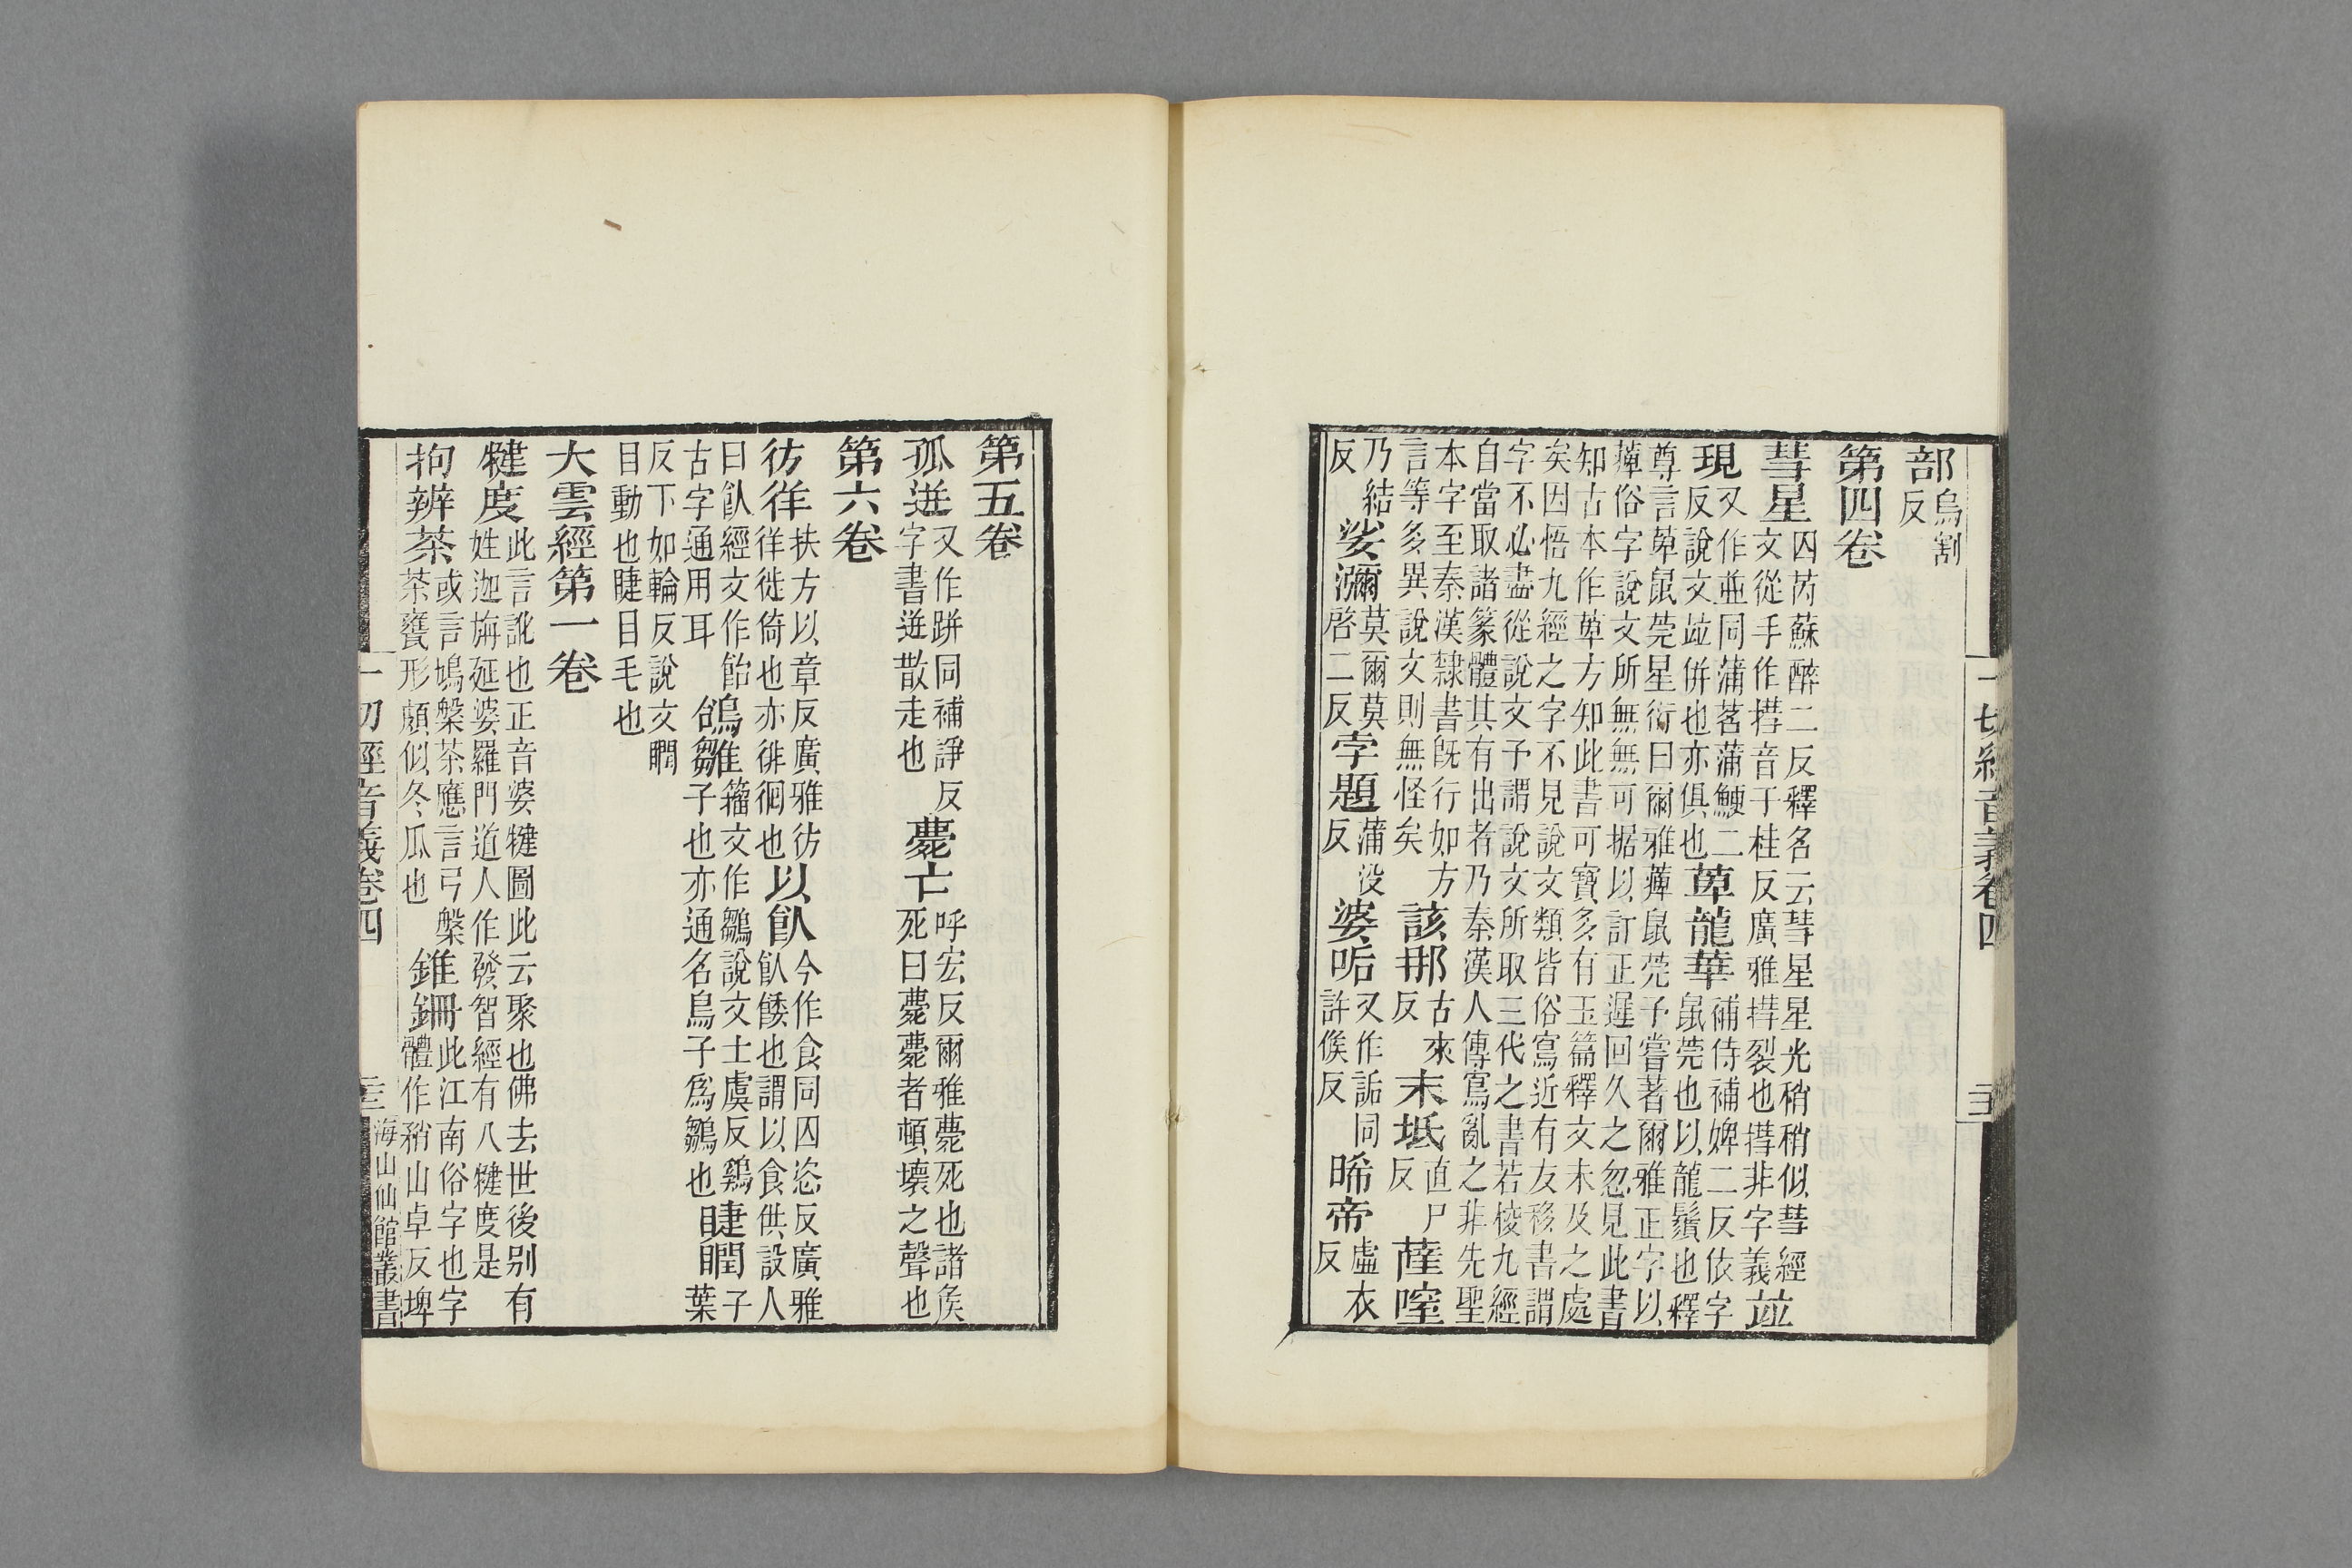 部烏割反
第四卷
彗星囚芮蘇醉二反釋名云彗星星光稍稍似彗經
文從手作音于桂反廣雅裂也非字義竝
現又作並同蒲茗蒲鯁二
反說文竝併也亦俱也萆龍華補侍補婢二反依字
鼠莞也以龍鬚也釋
尊言萆鼠莞星衍曰爾雅䕠鼠莞予嘗著爾雅正字以
䕠俗字說文所無無可据以訂正遲回久之忽見此書
知古本作萆方知此書可寶多有玉篇釋文未及之處
矣因悟九經之字不見說文類皆俗寫近有友移書謂
字不必盡從說文予謂說文所取三代之書若棱九經
自當取諸篆體其有出者乃秦漢人傳寫亂之非先聖
本字至秦漢隸書旣行如方
言等多異說文則無怪矣該那古來反末坻直尸反薩
乃結反娑瀰莫爾莫啓二反孛題蒲没反婆㖃又作詬同許候反晞帝虛衣反
一切經音義卷四
第五卷
孤迸又作跰同補諍反
字書迸散走也薨亡呼宏反爾雅薨死也諸侯
死曰薨薨者頓壞之聲也
第六卷
彷徉扶方以章反廣雅彷
徉徙倚也亦徘徊也以飤今作食同囚恣反廣雅
飤餧也謂以食供設人
曰飤經文作飴
古字通用耳鴿雛籀文作鶵說文士虞反鷄子
子也亦通名鳥子爲鶵也睫瞤葉
反下如輪反說文瞤
目動也睫目毛也
大雲經第一卷
犍度此言訛也正音婆犍圖此云聚也佛去世後別有
姓迦旃延婆羅門道人作發智經有八犍度是
拘辨茶或言鳩槃茶應言弓槃
茶甕形頗似冬瓜也錐鉧此江南俗字也字
體作矟山卓反埤
一切經音義卷四
海山仙館叢書